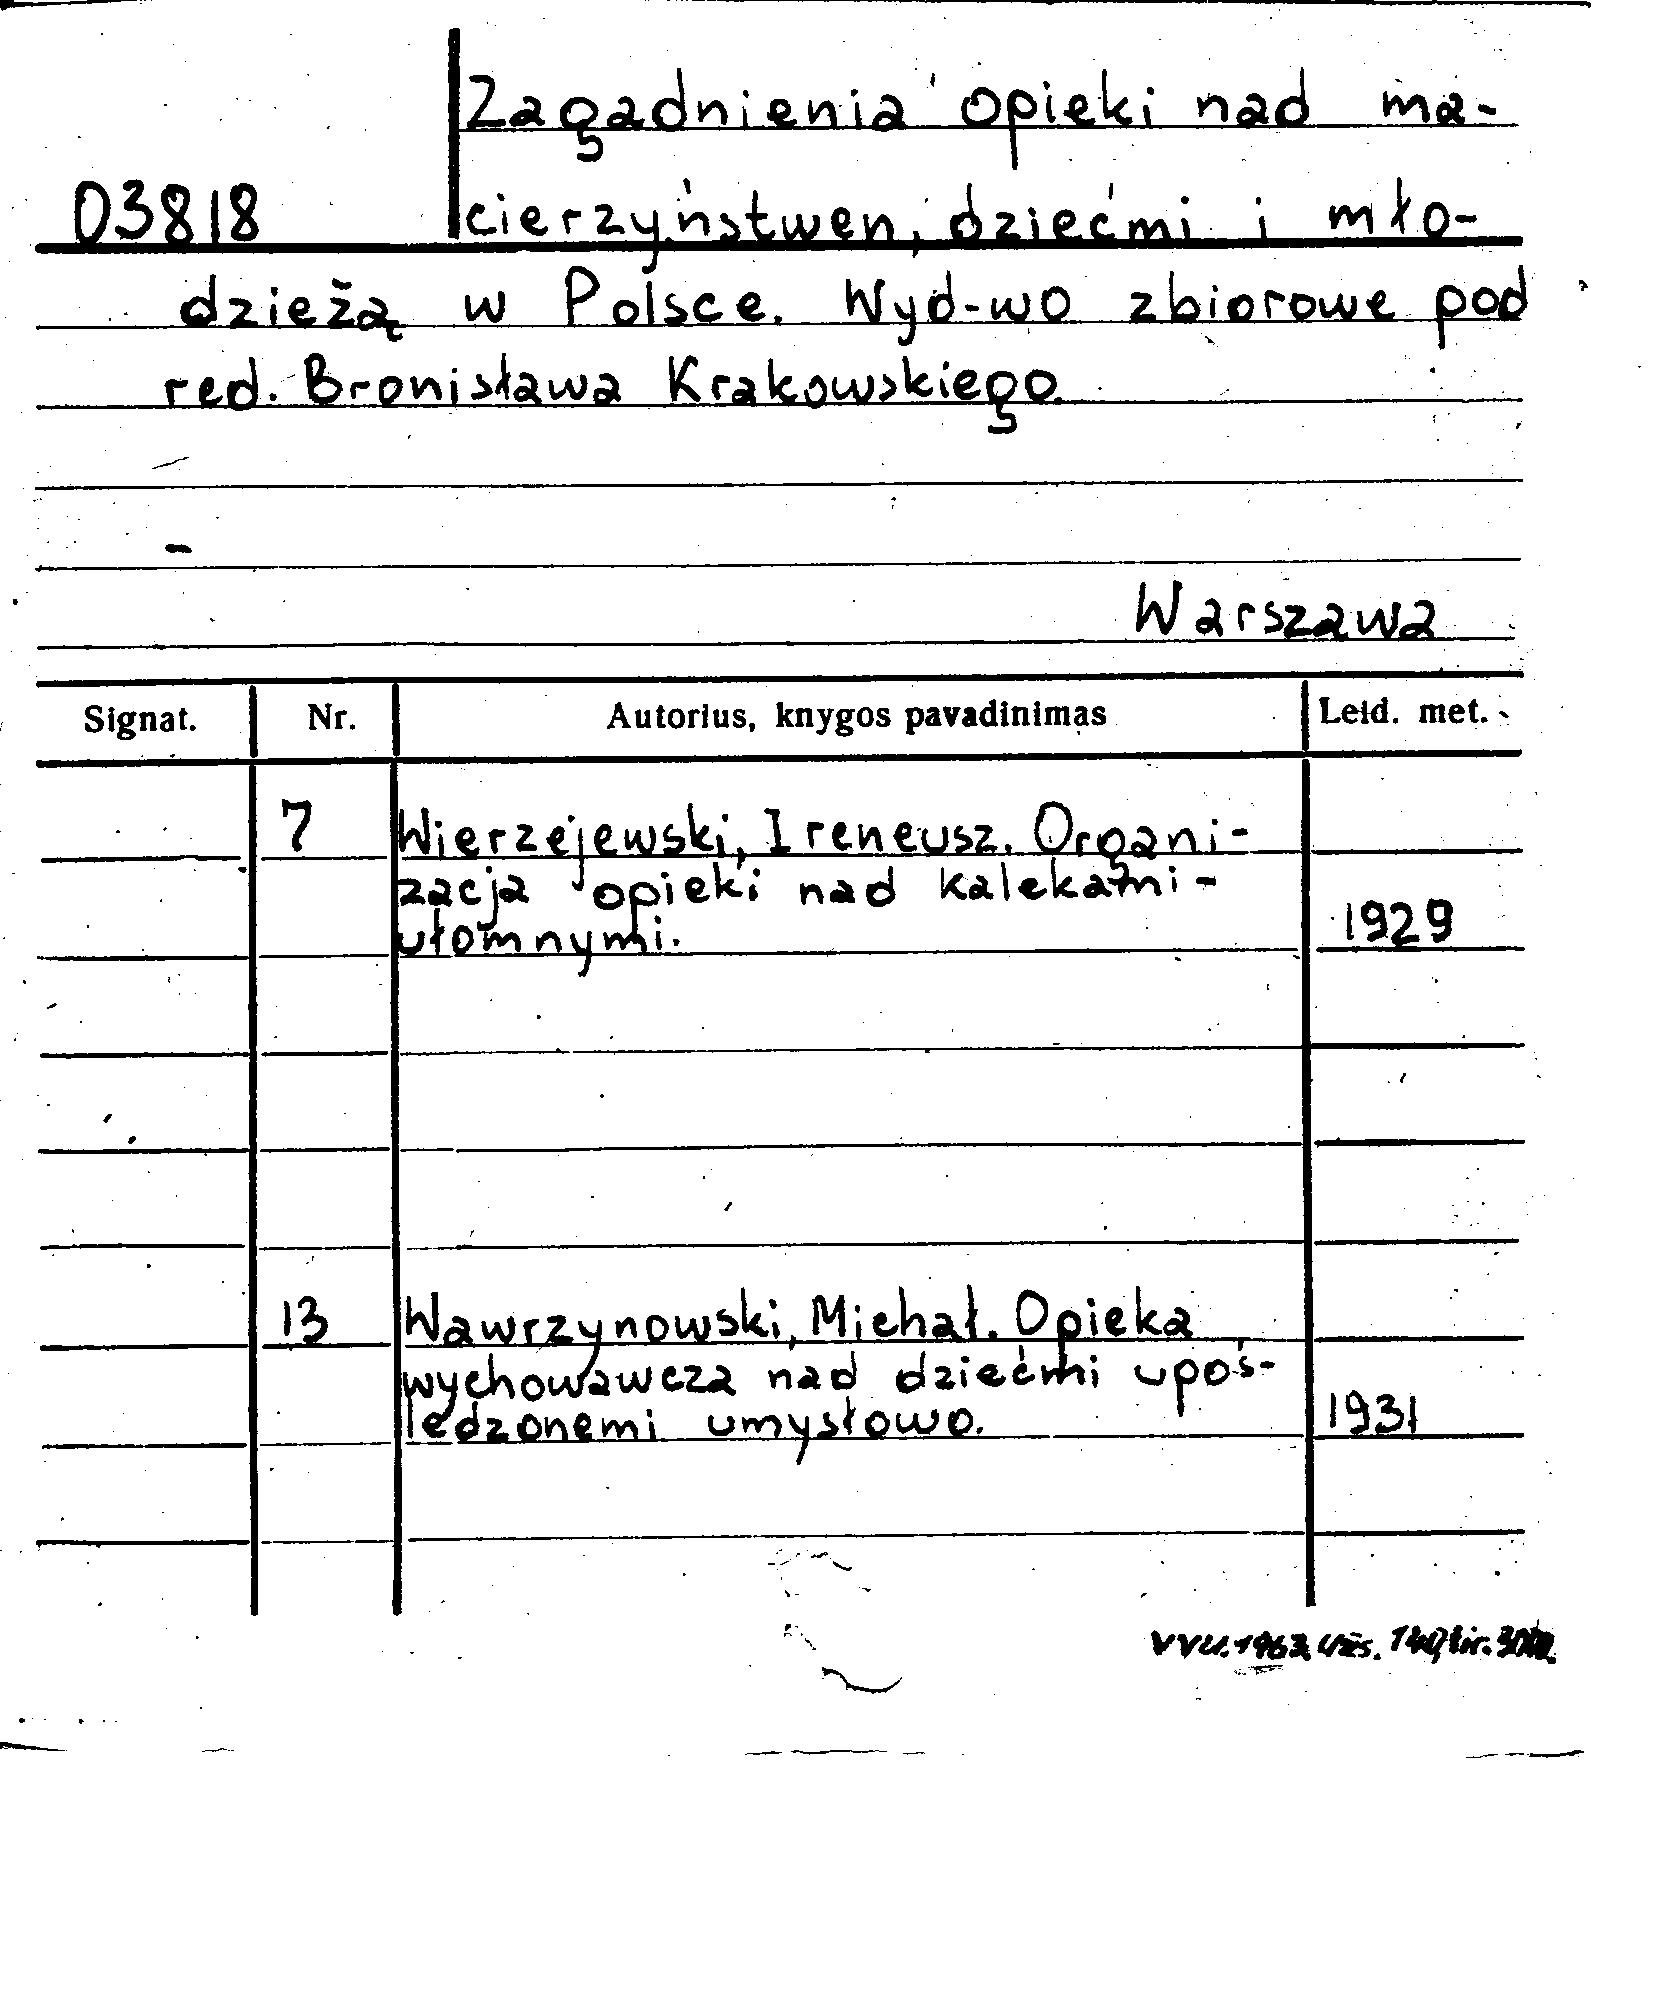 Zagadnienia opieki nad ma-
03818
cierzyństwen, dziećmi i mło-
dzieżą w Polsce. Wyd-wo zbiorowe pod
red. Bronisława Krakowskiego.
Warszawa
Signat. Nr. Autorius, knygos pavadinimas Leid. met.
7 Wierzejewski, Ireneusz. Organi-
zacja opieki nad kalekami-
ułomnymi. 1929
13 Wawrzynowski, Michał. Opieka
wychowawcza nad dziećmi upoś-
ledzonemi umysłowo. 1931
VVU. 1963 Užs. tir.